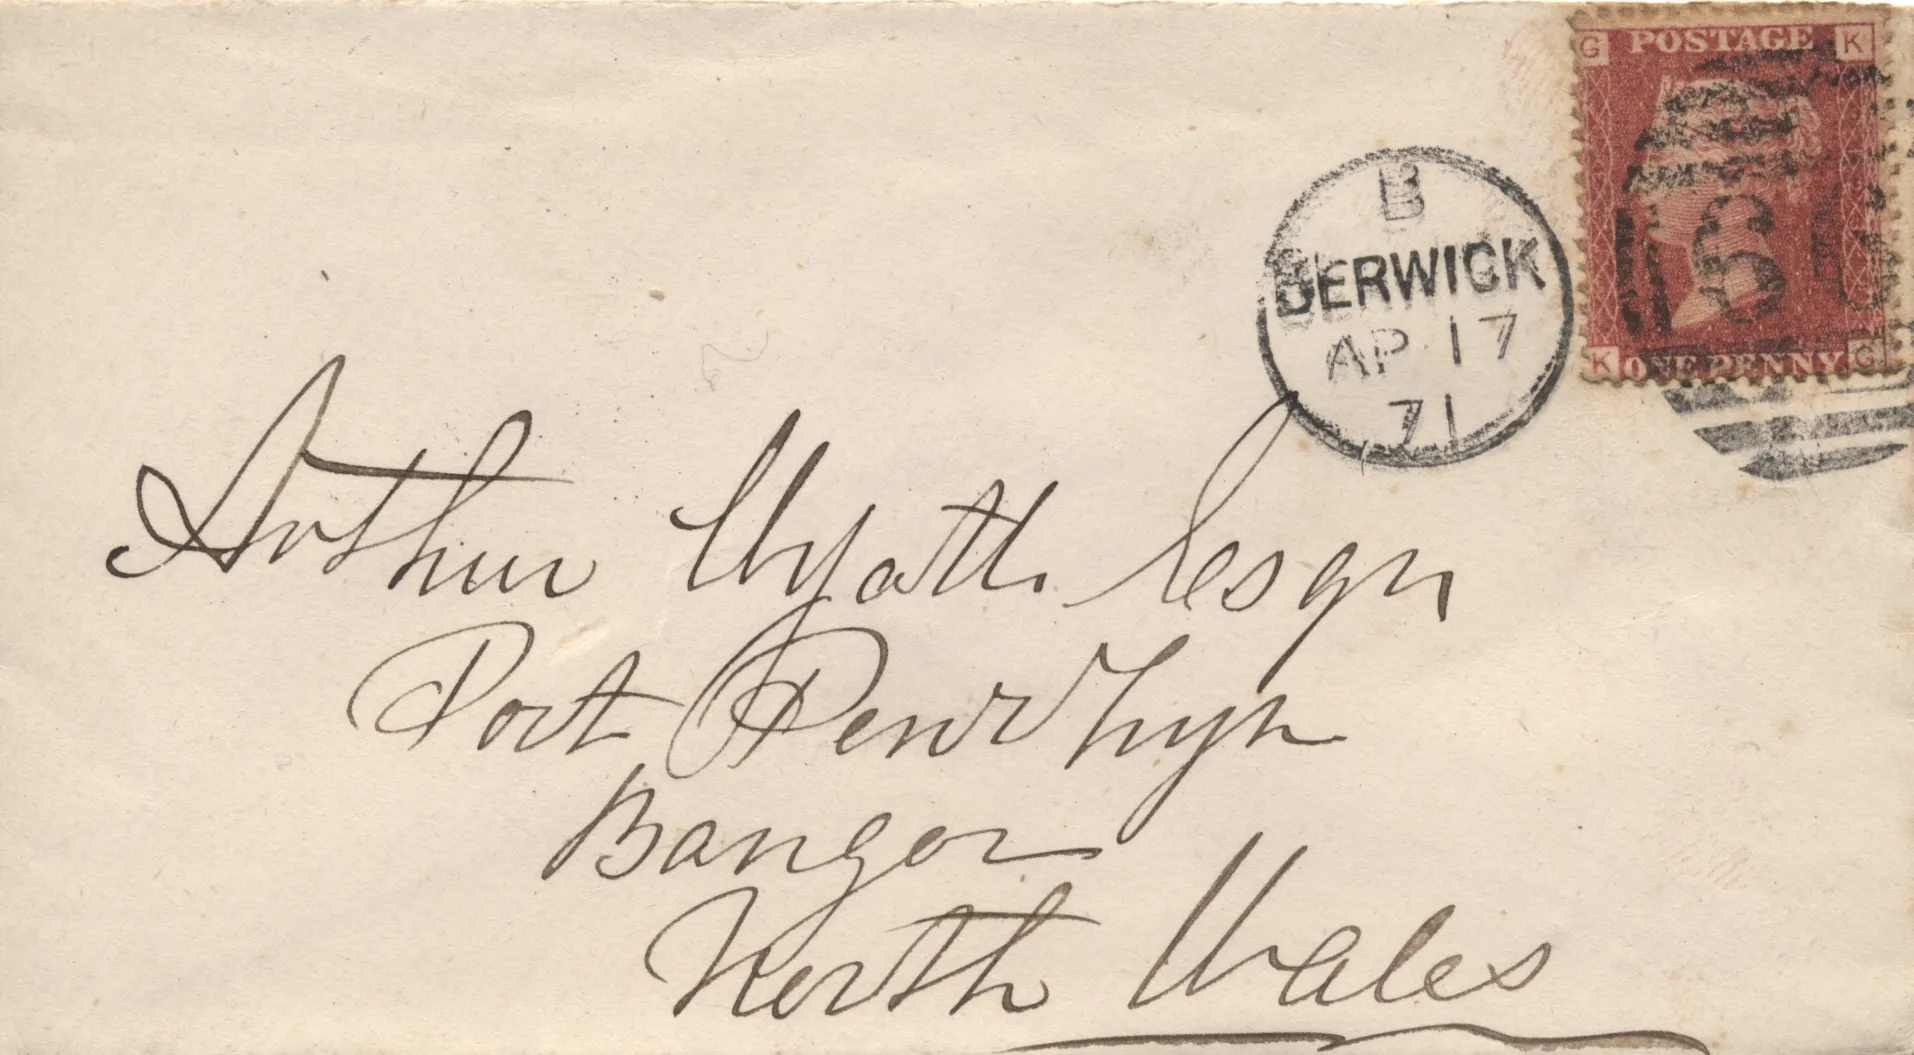 G POSTAGE K
K ONE PENNY G
B
BERWICK
AP 17
71
Arthur Wyatt Esqr
Port Penrhyn
Bangor
North Wales